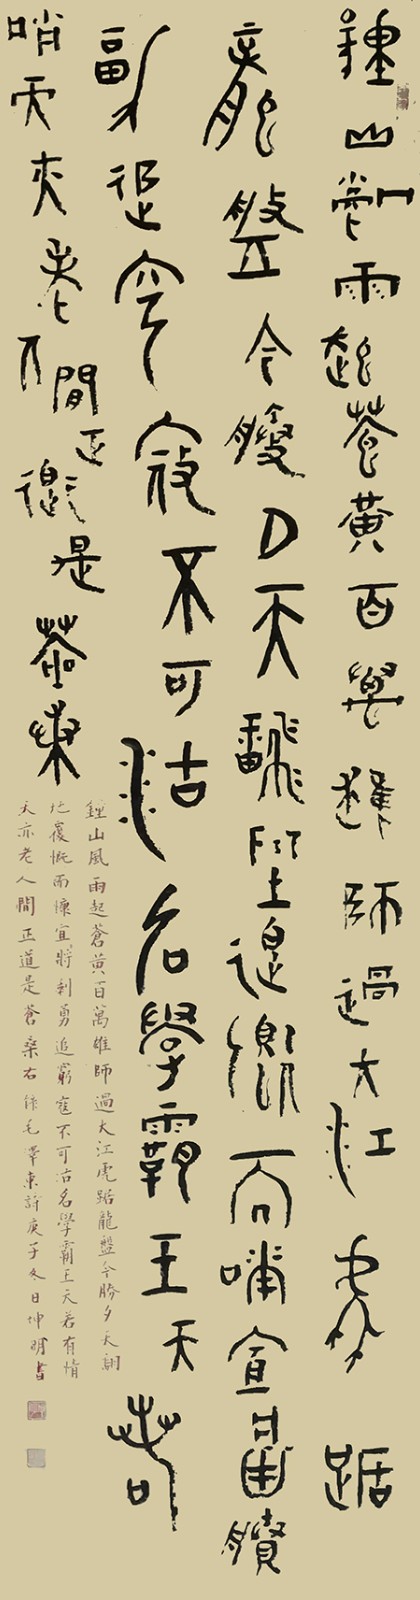 鍾山風雨起蒼黃百萬雄師過大江虎踞
龍盤今勝夕天翻地覆慨而慷宜將剩
勇追窮寇不可沽名學霸王天若
有情天亦老人間正道是蒼桑
鍾山風雨起蒼黃百萬雄師過大江虎踞龍盤今勝夕天翻
地覆慨而慷宜將剩勇追窮寇不可沽名學霸王天若有情
天亦老人間正道是蒼桑右錄毛澤東詩庚子冬日坤明書